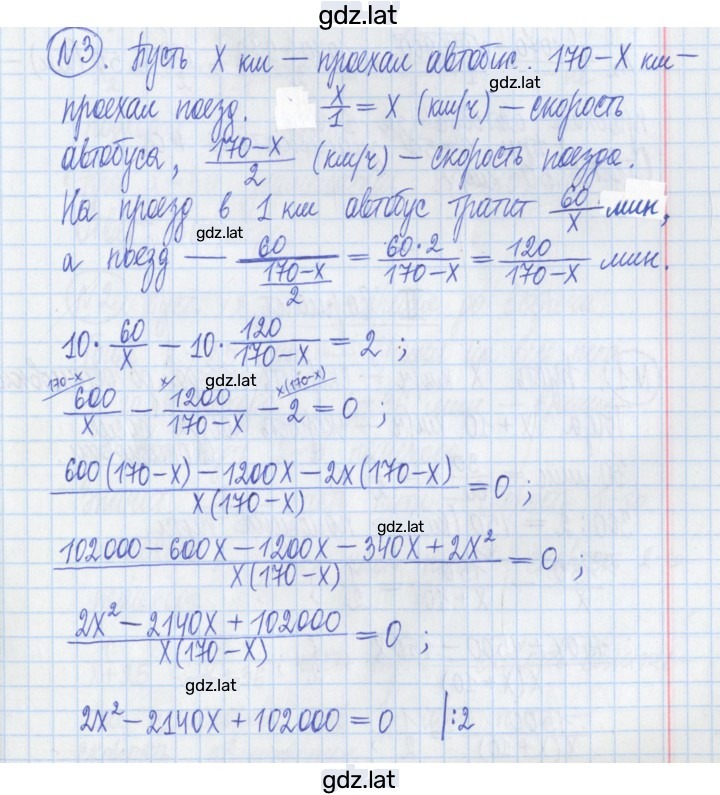 gdz.lat
№3. Пусть x км – проехал автобус. 170-x км –
проехал поезд. x/1 = x (км/ч) – скорость
автобуса, (170-x)/2 (км/ч) – скорость поезда.
На проезд в 1 км автобус тратит 60/x мин,
gdz.lat
а поезд — 60/((170-x)/2) = (60·2)/(170-x) = 120/(170-x) мин.
10·60/x - 10·120/(170-x) = 2 ;
gdz.lat
170-x x x(170-x)
600/x - 1200/(170-x) - 2 = 0 ;
(600(170-x)-1200x-2x(170-x))/(x(170-x)) = 0 ;
gdz.lat
(102000-600x-1200x-340x+2x²)/(x(170-x)) = 0 ;
(2x²-2140x+102000)/(x(170-x)) = 0 ;
gdz.lat
2x²-2140x+102000=0 |:2
gdz.lat